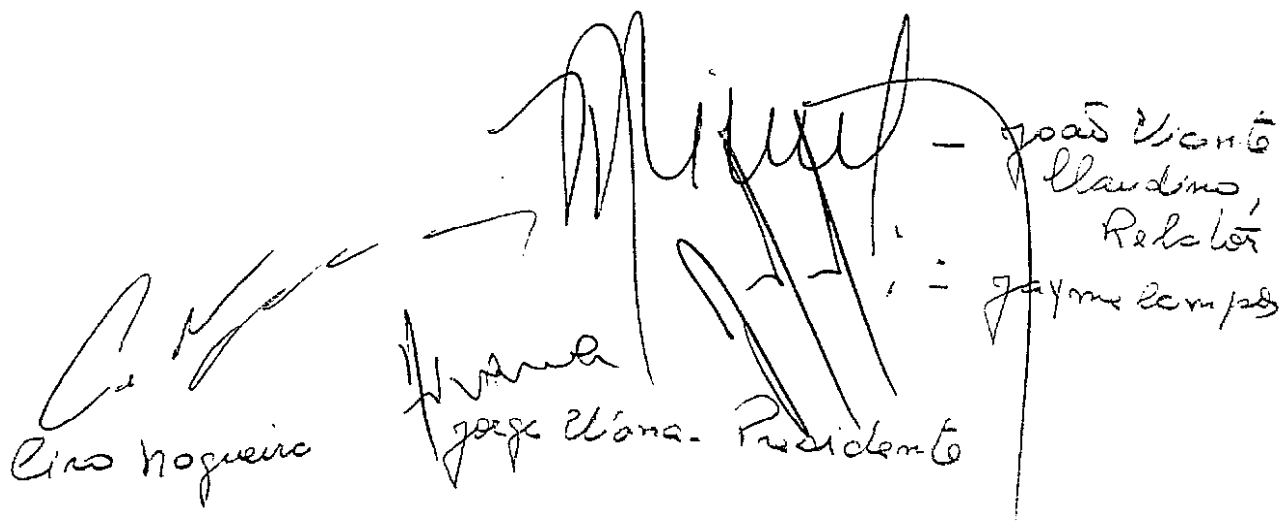 João Vicente
Claudino,
Relator
Jayme Campos
Ciro Nogueira
Jorge Viana - Presidente